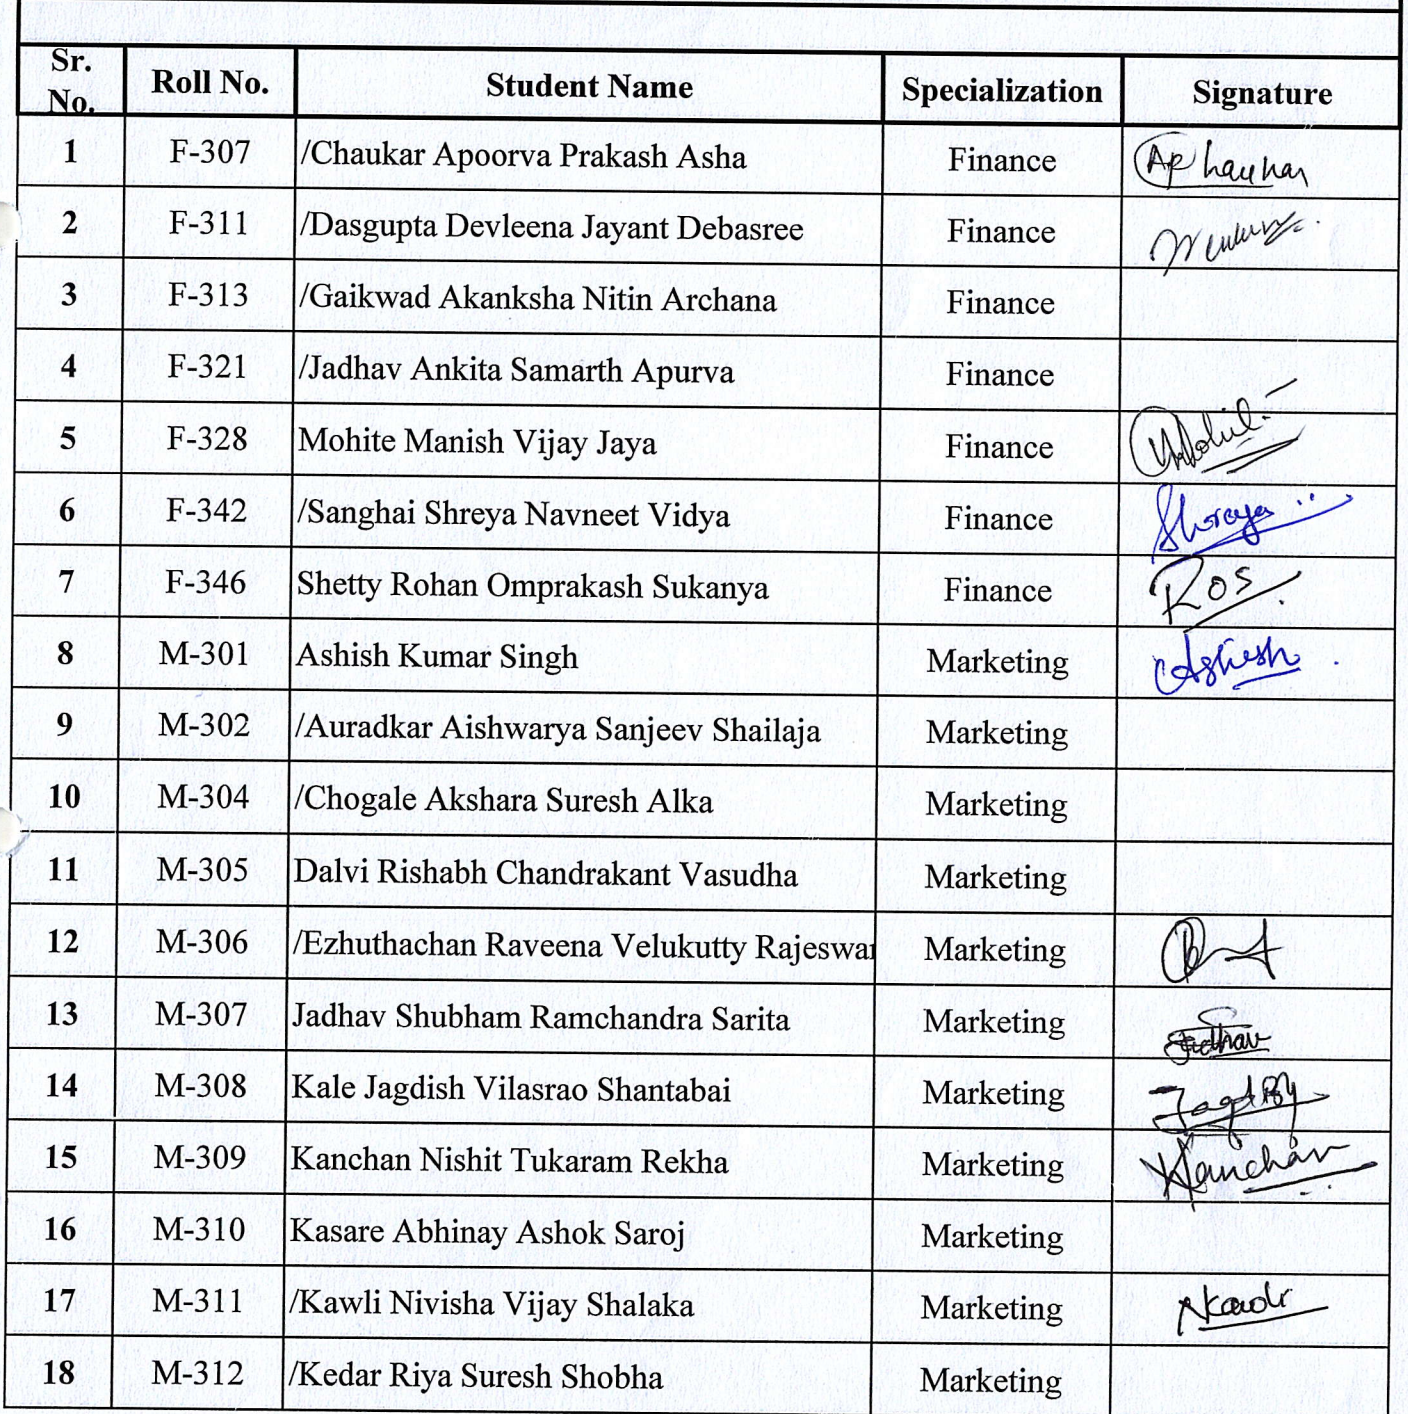 Sr. No. Roll No. Student Name Specialization Signature
1 F-307 /Chaukar Apoorva Prakash Asha Finance
2 F-311 /Dasgupta Devleena Jayant Debasree Finance
3 F-313 /Gaikwad Akanksha Nitin Archana Finance
4 F-321 /Jadhav Ankita Samarth Apurva Finance
5 F-328 Mohite Manish Vijay Jaya Finance
6 F-342 /Sanghai Shreya Navneet Vidya Finance Shreya
7 F-346 Shetty Rohan Omprakash Sukanya Finance ROS
8 M-301 Ashish Kumar Singh Marketing
9 M-302 /Auradkar Aishwarya Sanjeev Shailaja Marketing
10 M-304 /Chogale Akshara Suresh Alka Marketing
11 M-305 Dalvi Rishabh Chandrakant Vasudha Marketing
12 M-306 /Ezhuthachan Raveena Velukutty Rajeswar Marketing
13 M-307 Jadhav Shubham Ramchandra Sarita Marketing
14 M-308 Kale Jagdish Vilasrao Shantabai Marketing
15 M-309 Kanchan Nishit Tukaram Rekha Marketing Kanchan
16 M-310 Kasare Abhinay Ashok Saroj Marketing
17 M-311 /Kawli Nivisha Vijay Shalaka Marketing
18 M-312 /Kedar Riya Suresh Shobha Marketing